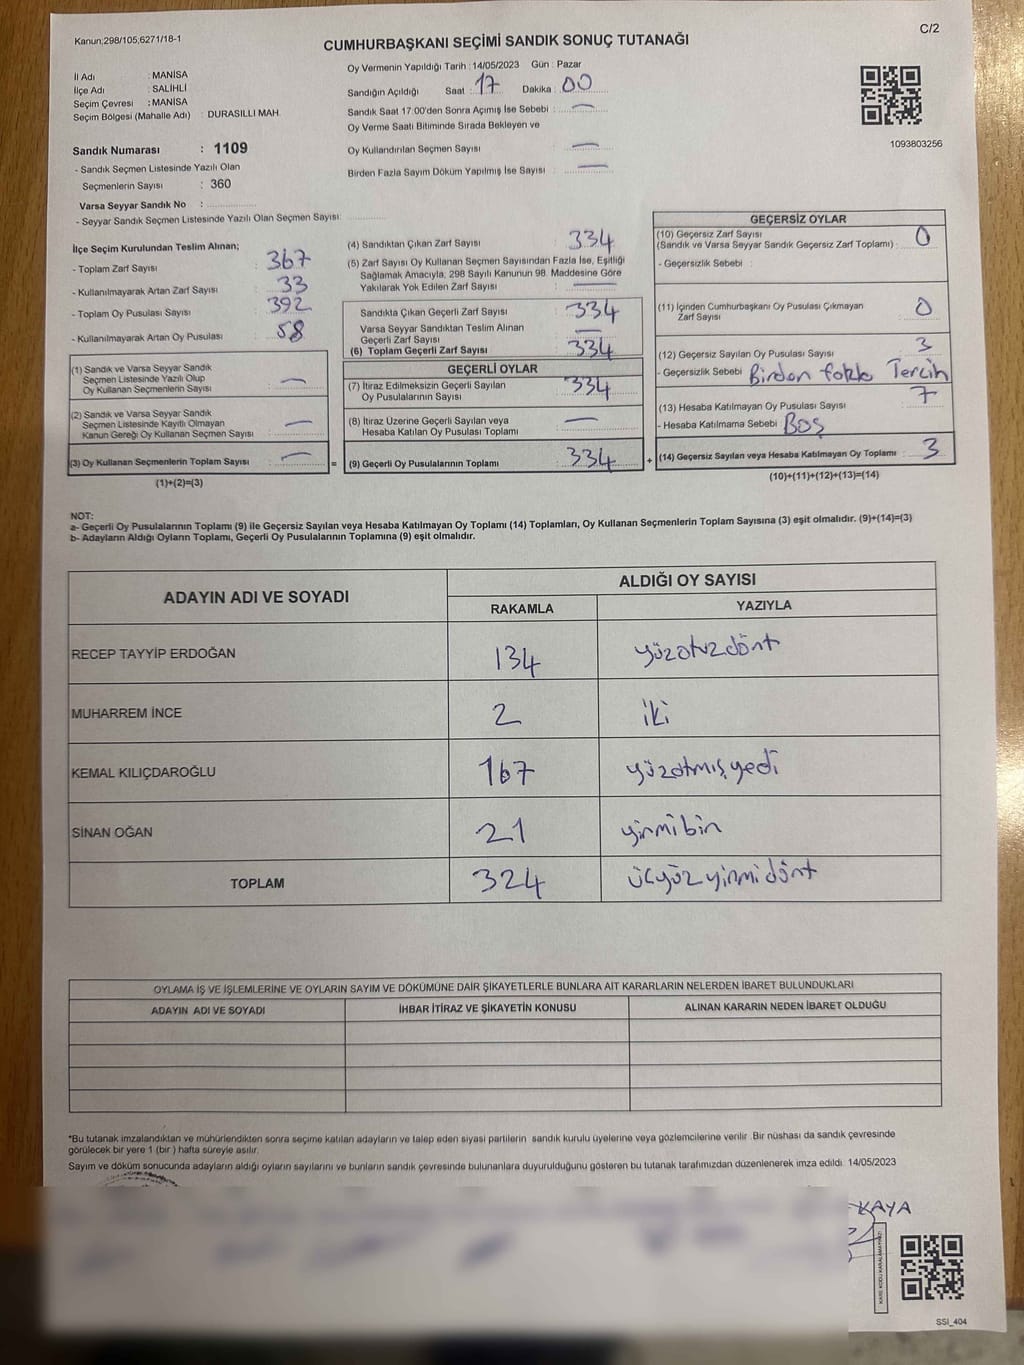 Kanun;298/105,6271/18-1
C/2
CUMHURBAŞKANI SEÇİMİ SANDIK SONUÇ TUTANAĞI
İl Adı : MANİSA
İlçe Adı : SALİHLİ
Seçim Çevresi : MANİSA
Seçim Bölgesi (Mahalle Adı) : DURASILLI MAH.
Sandık Numarası : 1109
- Sandık Seçmen Listesinde Yazılı Olan
Seçmenlerin Sayısı : 360
Varsa Seyyar Sandık No :
- Seyyar Sandık Seçmen Listesinde Yazılı Olan Seçmen Sayısı:
Oy Vermenin Yapıldığı Tarih : 14/05/2023 Gün : Pazar
Sandığın Açıldığı Saat : 17 Dakika : 00
Sandık Saat 17:00'den Sonra Açımış İse Sebebi : —
Oy Verme Saati Bitiminde Sırada Bekleyen ve
Oy Kullandırılan Seçmen Sayısı : —
Birden Fazla Sayım Döküm Yapılmış İse Sayısı : —
1093803256
İlçe Seçim Kurulundan Teslim Alınan;
- Toplam Zarf Sayısı : 367
- Kullanılmayarak Artan Zarf Sayısı : 33
- Toplam Oy Pusulası Sayısı : 392
- Kullanılmayarak Artan Oy Pusulası : 58
(1) Sandık ve Varsa Seyyar Sandık
Seçmen Listesinde Yazılı Olup
Oy Kullanan Seçmenlerin Sayısı : —
(2) Sandık ve Varsa Seyyar Sandık
Seçmen Listesinde Kayıtlı Olmayan
Kanun Gereği Oy Kullanan Seçmen Sayısı : —
(3) Oy Kullanan Seçmenlerin Toplam Sayısı : —
(1)+(2)=(3)
(4) Sandıktan Çıkan Zarf Sayısı : 334
(5) Zarf Sayısı Oy Kullanan Seçmen Sayısından Fazla İse, Eşitliği
Sağlamak Amacıyla, 298 Sayılı Kanunun 98. Maddesine Göre
Yakılarak Yok Edilen Zarf Sayısı : —
Sandıkta Çıkan Geçerli Zarf Sayısı : 334
Varsa Seyyar Sandıktan Teslim Alınan
Geçerli Zarf Sayısı : —
(6) Toplam Geçerli Zarf Sayısı : 334
GEÇERLİ OYLAR
(7) İtiraz Edilmeksizin Geçerli Sayılan
Oy Pusulalarının Sayısı : 334
(8) İtiraz Üzerine Geçerli Sayılan veya
Hesaba Katılan Oy Pusulası Toplamı : —
= (9) Geçerli Oy Pusulalarının Toplamı : 334
GEÇERSİZ OYLAR
(10) Geçersiz Zarf Sayısı
(Sandık ve Varsa Seyyar Sandık Geçersiz Zarf Toplamı) : 0
- Geçersizlik Sebebi :
(11) İçinden Cumhurbaşkanı Oy Pusulası Çıkmayan
Zarf Sayısı : 0
(12) Geçersiz Sayılan Oy Pusulası Sayısı : 3
- Geçersizlik Sebebi Birden fazla Tercih
(13) Hesaba Katılmayan Oy Pusulası Sayısı : 7
- Hesaba Katılmama Sebebi : Boş
+ (14) Geçersiz Sayılan veya Hesaba Katılmayan Oy Toplamı : 3
(10)+(11)+(12)+(13)=(14)
NOT:
a- Geçerli Oy Pusulalarının Toplamı (9) ile Geçersiz Sayılan veya Hesaba Katılmayan Oy Toplamı (14) Toplamları, Oy Kullanan Seçmenlerin Toplam Sayısına (3) eşit olmalıdır. (9)+(14)=(3)
b- Adayların Aldığı Oyların Toplamı, Geçerli Oy Pusulalarının Toplamına (9) eşit olmalıdır.
ADAYIN ADI VE SOYADI ALDIĞI OY SAYISI
RAKAMLA YAZIYLA
RECEP TAYYİP ERDOĞAN 134 yüzotuzdört
MUHARREM İNCE 2 iki
KEMAL KILIÇDAROĞLU 167 yüzatmışyedi
SİNAN OĞAN 21 yirmibir
TOPLAM 324 üçyüzyirmidört
OYLAMA İŞ VE İŞLEMLERİNE VE OYLARIN SAYIM VE DÖKÜMÜNE DAİR ŞİKAYETLERLE BUNLARA AİT KARARLARIN NELERDEN İBARET BULUNDUKLARI
ADAYIN ADI VE SOYADI İHBAR İTİRAZ VE ŞİKAYETİN KONUSU ALINAN KARARIN NEDEN İBARET OLDUĞU
*Bu tutanak imzalandıktan ve mühürlendikten sonra seçime katılan adayların ve talep eden siyasi partilerin sandık kurulu üyelerine veya gözlemcilerine verilir. Bir nüshası da sandık çevresinde
görülecek bir yere 1 (bir) hafta süreyle asılır.
Sayım ve döküm sonucunda adayların aldığı oyların sayılarını ve bunların sandık çevresinde bulunanlara duyurulduğunu gösteren bu tutanak tarafımızdan düzenlenerek imza edildi. 14/05/2023
KAYA
KARE KODU KARALAMAYINIZ!
SSI_404